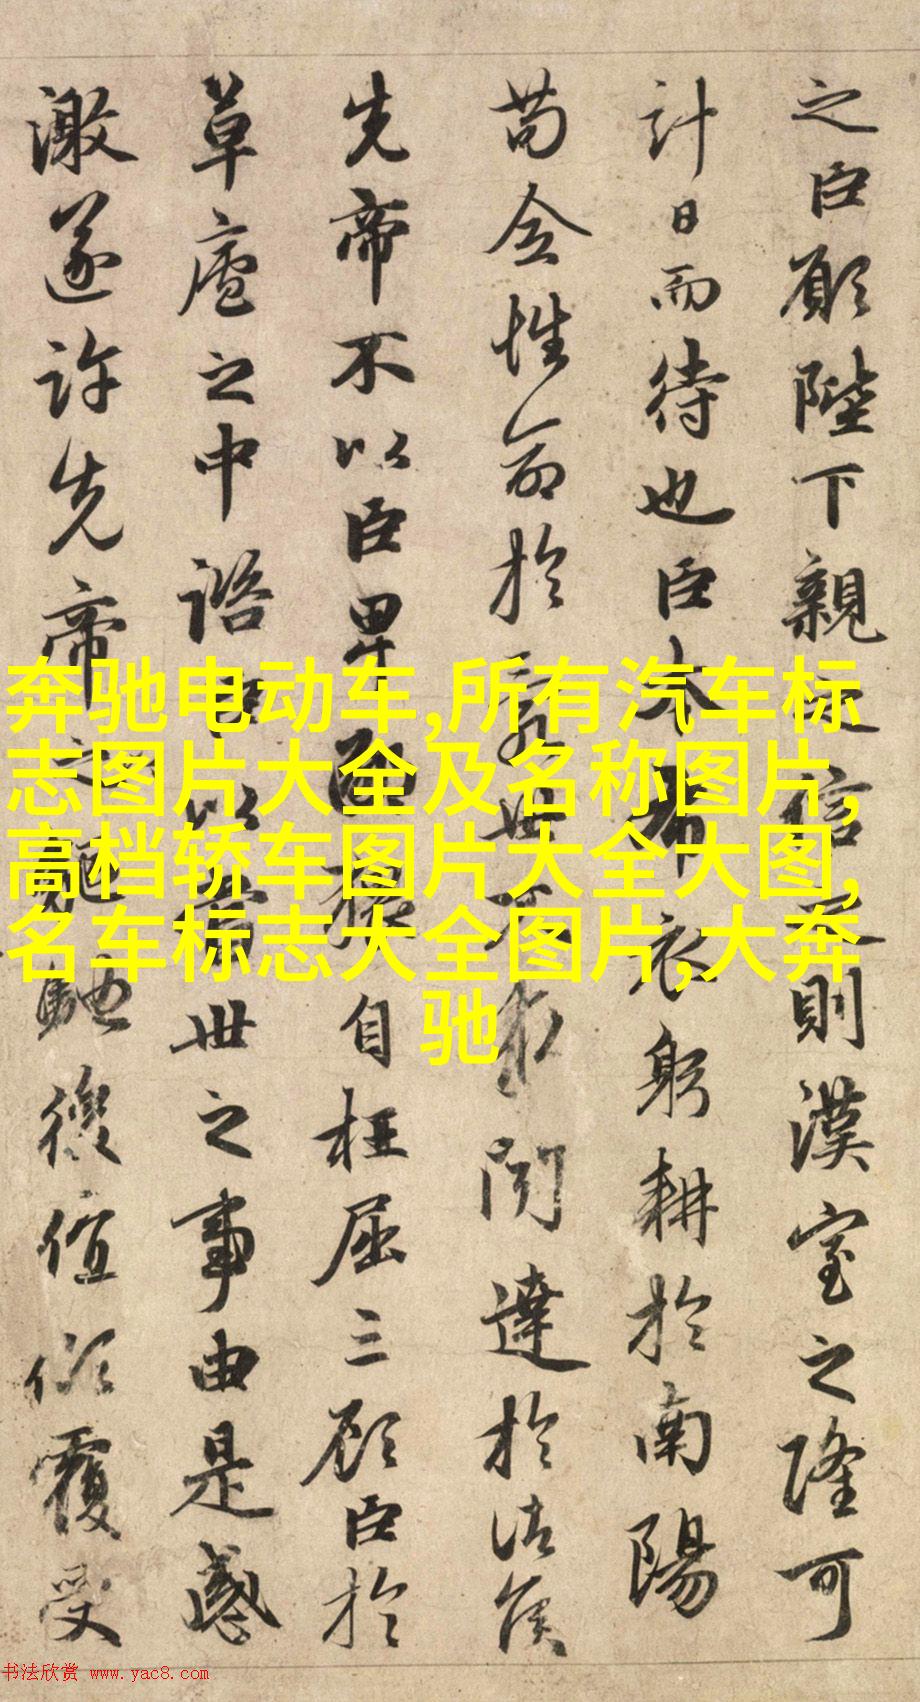 之臣願陛下親之信之則漢室之隆可
計日而待也臣本布衣躬耕於南陽
苟全性命於亂世不求聞達於諸侯
先帝不以臣卑鄙猥自枉屈三顧臣於
草廬之中諮臣以當世之事由是感
激遂許先帝之驅馳後值傾覆受
奔驰电动车,所有汽车标
志图片大全及名称图片,
高档轿车图片大全大图,
名车标志大全图片,大奔
驰
书法欣赏 www.yac8.com